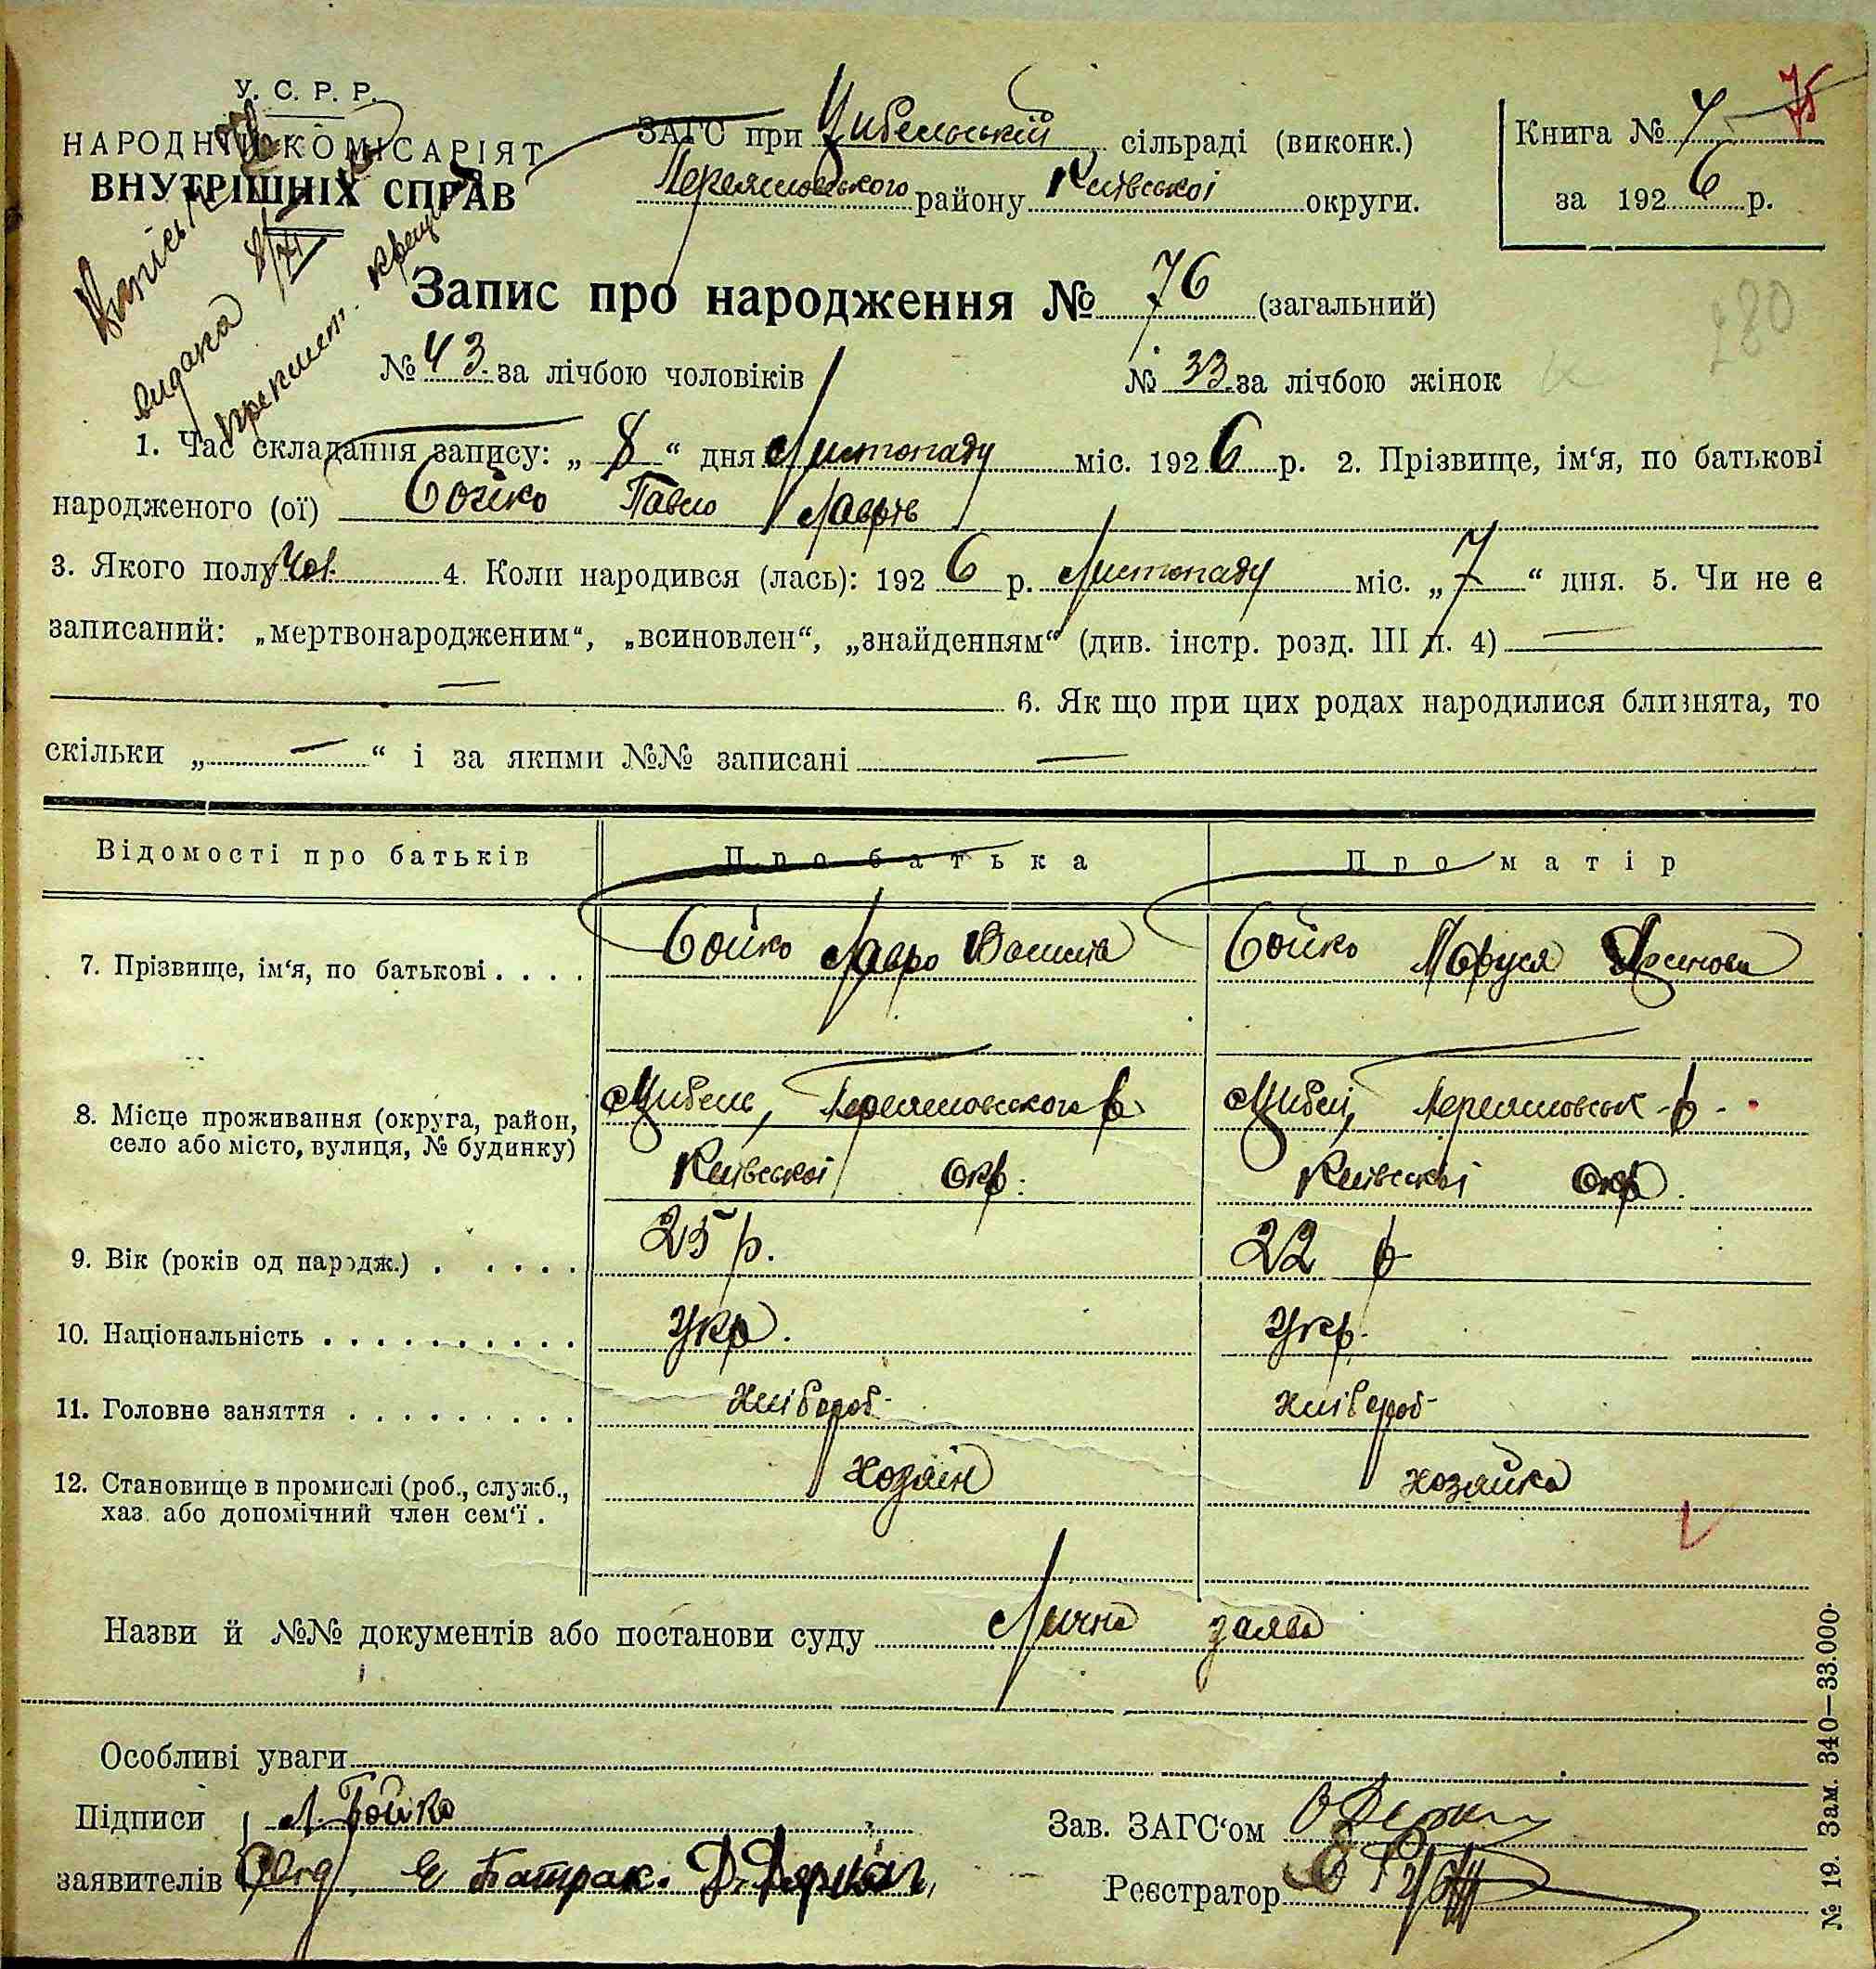 У. С. Р. Р.
НАРОДНІЙ КОМІСАРІЯТ
ВНУТРІШНІХ СПРАВ
ЗАГС при Цибельській сільраді (виконк.)
Переясловського району Київської округи.
Книга № 7 75
за 1926 р.
видана 8/XI
Запис про народження № 76 (загальний)
280
№ 43 за лічбою чоловіків № 33 за лічбою жінок
1. Час складання запису: „8“ дня Листопаду міс. 1926 р. 2. Прізвище, ім‘я, по батькові
народженого (ої) Бойко Павло Лаврів
3. Якого полу Чол. 4. Коли народився (лась): 1926 р. Листопаду міс. „7“ дня. 5. Чи не є
записаний: „мертвонародженим“, „всиновлен“, „знайденням“ (див. інстр. розд. III п. 4) —
— 6. Як що при цих родах народилися близнята, то
скільки „—“ і за якими №№ записані —
Відомості про батьків Про батька Про матір
7. Прізвище, ім‘я, по батькові . . . . Бойко Лавро Бойко Маруся
8. Місце проживання (округа, район, Цибель, Переясловского р. Цибел, Переясловськ р.
село або місто, вулиця, № будинку) Київської Окр. Київської Окр.
9. Вік (років од народж.) . . . . . 25 р. 22 р
10. Національність . . . . . . . . . . Укр. Укр.
11. Головне заняття . . . . . . . . . . хлібороб- хлібороб-
12. Становище в промислі (роб., служб., хозяін хозяйка
хаз. або допомічний член сем‘ї .
Назви й №№ документів або постанови суду Лична заява
Особливі уваги
Підписи Л. Бойко Зав. ЗАГС‘ом
заявителів Є Батрак. Д. Деркач, Реєстратор
№ 19. Зам. 340—33.000.